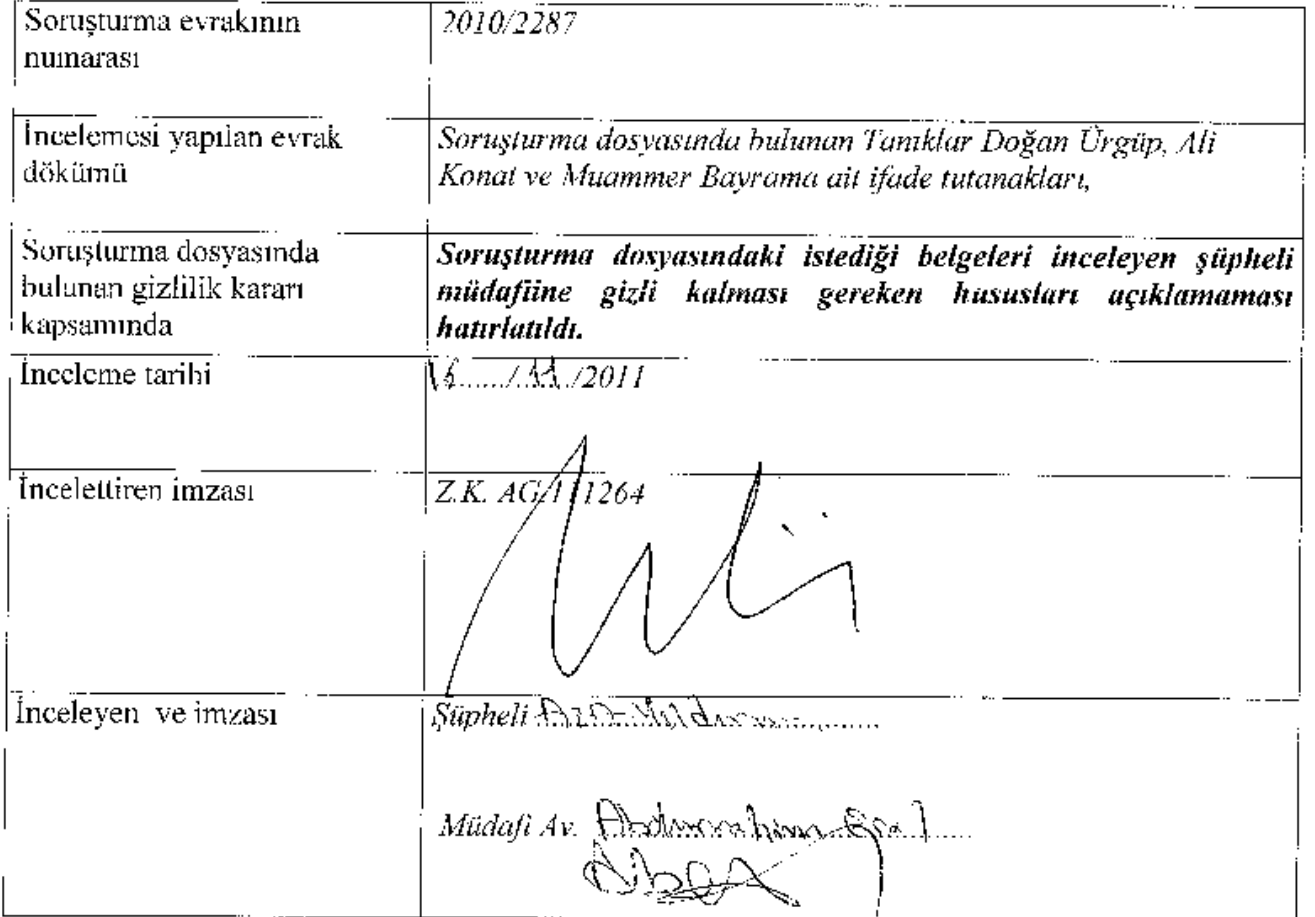 Soruşturma evrakının
numarası
2010/2287
İncelemesi yapılan evrak
dökümü
Soruşturma dosyasında bulunan Tanıklar Doğan Ürgüp, Ali
Konat ve Muammer Bayrama ait ifade tutanakları,
Soruşturma dosyasında
bulunan gizlilik kararı
kapsamında
Soruşturma dosyasındaki istediği belgeleri inceleyen şüpheli
müdafiine gizli kalması gereken hususları açıklamaması
hatırlatıldı.
İnceleme tarihi
16....../.11./2011
İncelettiren imzası
Z.K. AG/1 1264
İnceleyen ve imzası
Şüpheli
Müdafi Av.